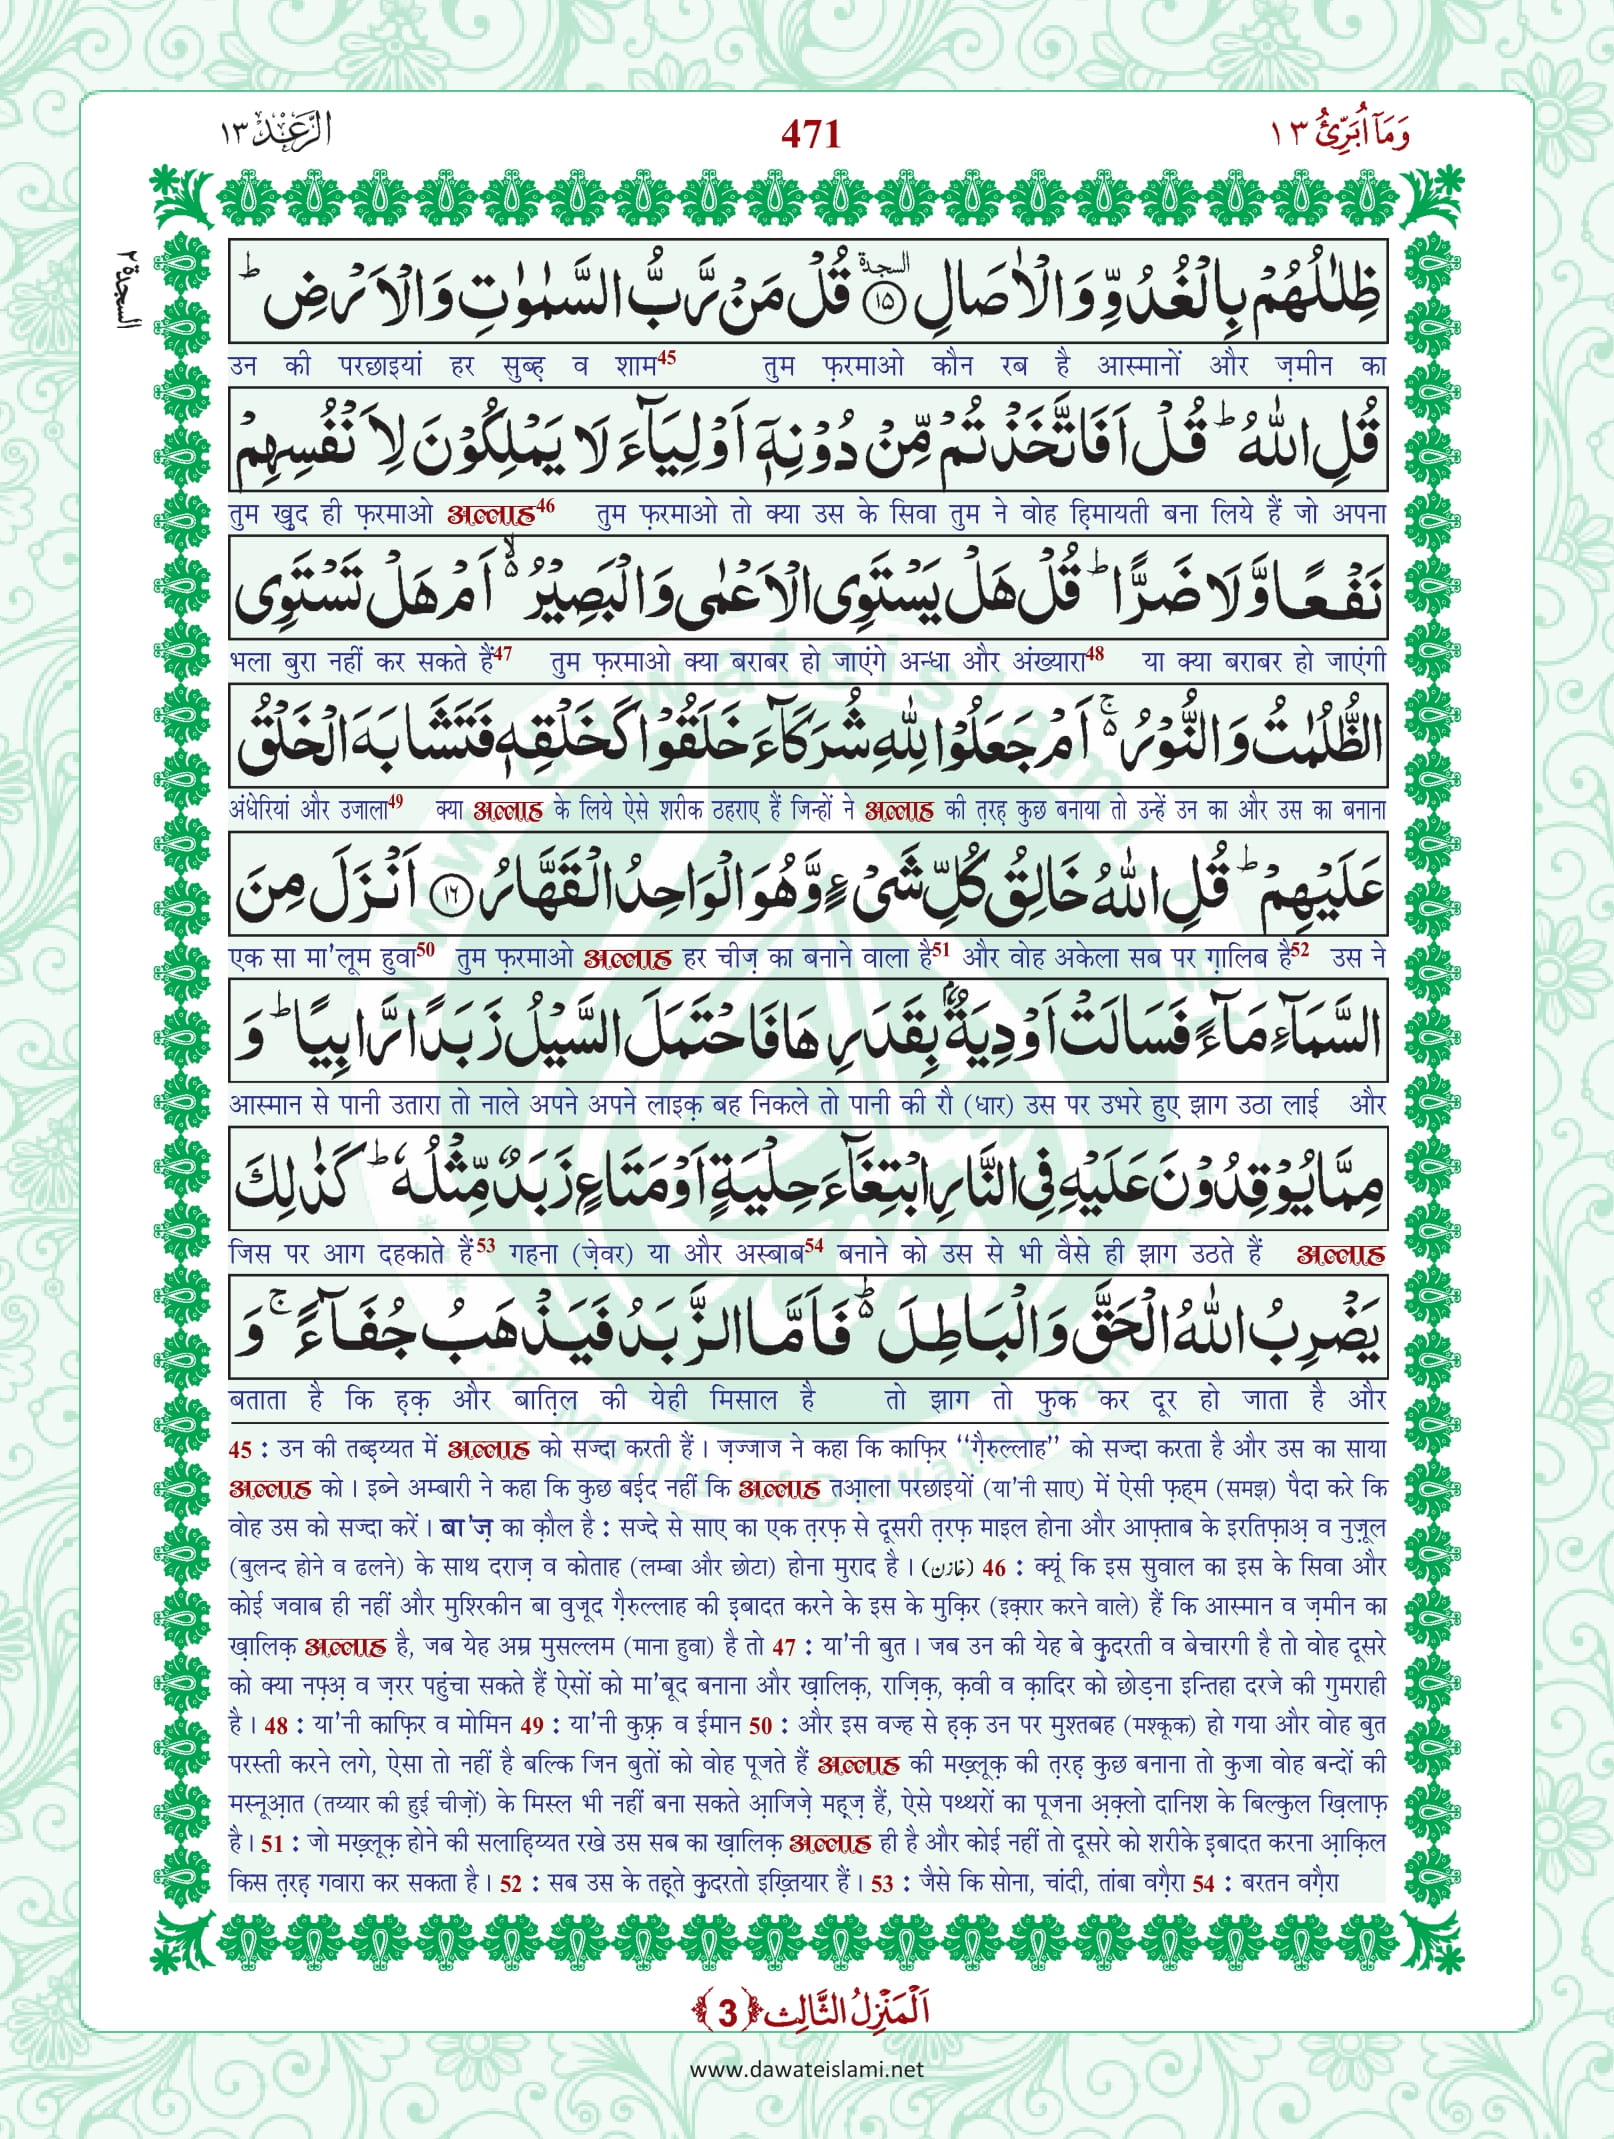 وَمَآ اُبَرِّئُ ١٣
471
الرَّعْد ١٣
السجدة ٢
ظِلٰلُهُمْ بِالْغُدُوِّ وَالْاٰصَالِ ۩ السجدة ﴿۱۵﴾ قُلْ مَنْ رَّبُّ السَّمٰوٰتِ وَالْاَرْضِ ؕ
उन की परछाइयां हर सुब्ह़ व शाम45 तुम फ़रमाओ कौन रब है आस्मानों और ज़मीन का
قُلِ اللّٰهُ ؕ قُلْ اَفَاتَّخَذْتُمْ مِّنْ دُوْنِهٖۤ اَوْلِيَآءَ لَا يَمْلِكُوْنَ لِاَنْفُسِهِمْ
तुम ख़ुद ही फ़रमाओ अल्लाह46 तुम फ़रमाओ तो क्या उस के सिवा तुम ने वोह ह़िमायती बना लिये हैं जो अपना
نَفْعًا وَّلَا ضَرًّا ؕ قُلْ هَلْ يَسْتَوِى الْاَعْمٰى وَالْبَصِيْرُ ۙ۬ اَمْ هَلْ تَسْتَوِى
भला बुरा नहीं कर सकते हैं47 तुम फ़रमाओ क्या बराबर हो जाएंगे अन्धा और अंख्यारा48 या क्या बराबर हो जाएंगी
الظُّلُمٰتُ وَالنُّوْرُ ۚ۬ اَمْ جَعَلُوْا لِلّٰهِ شُرَكَآءَ خَلَقُوْا كَخَلْقِهٖ فَتَشَابَهَ الْخَلْقُ
अंधेरियां और उजाला49 क्या अल्लाह के लिये ऐसे शरीक ठहराए हैं जिन्हों ने अल्लाह की त़रह़ कुछ बनाया तो उन्हें उन का और उस का बनाना
عَلَيْهِمْ ؕ قُلِ اللّٰهُ خَالِقُ كُلِّ شَىْءٍ وَّهُوَ الْوَاحِدُ الْقَهَّارُ ﴿۱۶﴾ اَنْزَلَ مِنَ
एक सा मा'लूम हुवा50 तुम फ़रमाओ अल्लाह हर चीज़ का बनाने वाला है51 और वोह अकेला सब पर ग़ालिब है52 उस ने
السَّمَآءِ مَآءً فَسَالَتْ اَوْدِيَةٌۢ بِقَدَرِهَا فَاحْتَمَلَ السَّيْلُ زَبَدًا رَّابِيًا ؕ وَ
आस्मान से पानी उतारा तो नाले अपने अपने लाइक़ बह निकले तो पानी की रौ (धार) उस पर उभरे हुए झाग उठा लाई और
مِمَّا يُوْقِدُوْنَ عَلَيْهِ فِى النَّارِ ابْتِغَآءَ حِلْيَةٍ اَوْ مَتَاعٍ زَبَدٌ مِّثْلُهٗ ؕ كَذٰلِكَ
जिस पर आग दहकाते हैं53 गहना (ज़ेवर) या और अस्बाब54 बनाने को उस से भी वैसे ही झाग उठते हैं अल्लाह
يَضْرِبُ اللّٰهُ الْحَقَّ وَالْبَاطِلَ ؕ۬ فَاَمَّا الزَّبَدُ فَيَذْهَبُ جُفَآءً ۚ وَ
बताता है कि ह़क़ और बात़िल की येही मिसाल है तो झाग तो फुक कर दूर हो जाता है और
45 : उन की तब्इय्यत में अल्लाह को सज्दा करती हैं। ज़ज्जाज ने कहा कि काफ़िर “ग़ैरुल्लाह” को सज्दा करता है और उस का साया
अल्लाह को। इब्ने अम्बारी ने कहा कि कुछ बईद नहीं कि अल्लाह तआ़ला परछाइयों (या'नी साए) में ऐसी फ़ह्म (समझ) पैदा करे कि
वोह उस को सज्दा करें। बा'ज़ का क़ौल है : सज्दे से साए का एक त़रफ़ से दूसरी त़रफ़ माइल होना और आफ़्ताब के इरतिफ़ाअ़ व नुज़ूल
(बुलन्द होने व ढलने) के साथ दराज़ व कोताह (लम्बा और छोटा) होना मुराद है। (خازن) 46 : क्यूं कि इस सुवाल का इस के सिवा और
कोई जवाब ही नहीं और मुश्रिकीन बा वुजूद ग़ैरुल्लाह की इबादत करने के इस के मुक़िर (इक़्रार करने वाले) हैं कि आस्मान व ज़मीन का
ख़ालिक़ अल्लाह है, जब येह अम्र मुसल्लम (माना हुवा) है तो 47 : या'नी बुत। जब उन की येह बे क़ुदरती व बेचारगी है तो वोह दूसरे
को क्या नफ़्अ़ व ज़रर पहुंचा सकते हैं ऐसों को मा'बूद बनाना और ख़ालिक़, राज़िक़, क़वी व क़ादिर को छोड़ना इन्तिहा दरजे की गुमराही
है। 48 : या'नी काफ़िर व मोमिन 49 : या'नी कुफ़्र व ईमान 50 : और इस वज्ह से ह़क़ उन पर मुश्तबह (मश्कूक) हो गया और वोह बुत
परस्ती करने लगे, ऐसा तो नहीं है बल्कि जिन बुतों को वोह पूजते हैं अल्लाह की मख़्लूक़ की त़रह़ कुछ बनाना तो कुजा वोह बन्दों की
मस्नूआ़त (तय्यार की हुई चीज़ों) के मिस्ल भी नहीं बना सकते आ़जिज़े मह़्ज़ हैं, ऐसे पथ्थरों का पूजना अ़क़्लो दानिश के बिल्कुल ख़िलाफ़
है। 51 : जो मख़्लूक़ होने की सलाहि़य्यत रखे उस सब का ख़ालिक़ अल्लाह ही है और कोई नहीं तो दूसरे को शरीके इ़बादत करना आ़क़िल
किस त़रह़ गवारा कर सकता है। 52 : सब उस के तह़्ते क़ुदरतो इख़्तियार हैं। 53 : जैसे कि सोना, चांदी, तांबा वग़ैरा 54 : बरतन वग़ैरा
اَلْمَنْزِلُ الثَّالِث ﴿3﴾
www.dawateislami.net